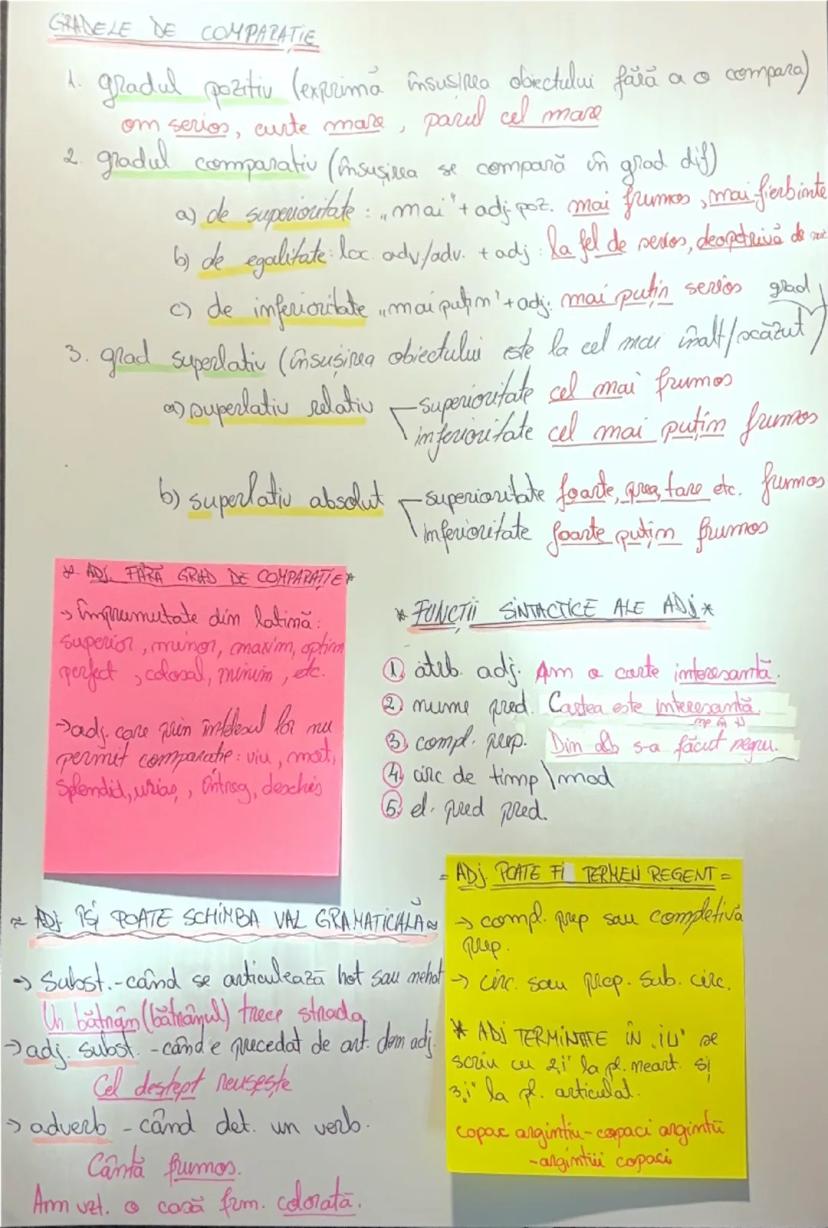 GRADELE DE COMPARAȚIE
1. gradul pozitiv (exprimă însușirea obiectului fără a o compara)
om serios, curte mare, parul cel mare
2. gradul comparativ (însușirea se compară în grad dif)
a) de superioritate: „mai" + adj. poz. mai frumos, mai fierbinte
b) de egalitate: loc. adv/adv. + adj. la fel de serios, deopotrivă de
c) de inferioritate „mai puțin" + adj. mai puțin serios
3. grad superlativ (însușirea obiectului este la cel mai înalt/scăzut grad)
a) superlativ relativ superioritate cel mai frumos
inferioritate cel mai puțin frumos
b) superlativ absolut superioritate foarte, prea, tare etc. frumos
inferioritate foarte puțin frumos
* ADJ. FĂRĂ GRAD DE COMPARAȚIE *
→ Împrumutate din latină:
superior, minor, maxim, optim
perfect, colosal, minim, etc.
→ adj. care prin înțelesul lor nu
permit comparație: viu, mort,
splendid, uriaș, întreg, deschis
* FUNCȚII SINTACTICE ALE ADJ *
1 atrib. adj. Am o carte interesantă.
2 nume pred. Cartea este interesantă
3 compl. prep. Din alb s-a făcut negru.
4 circ de timp \ mod
5. el. pred pred.
~ ADJ. ÎȘI POATE SCHIMBA VAL GRAMATICALĂ ~
→ Subst. - când se articulează hot sau nehot
Un bătrân (bătrânul) trece strada
→ adj. subst. - când e precedat de art. dem adj.
Cel deștept reușește
→ adverb - când det. un verb.
Cântă frumos.
Am vzt. o casă frm. colorată.
= ADJ POATE FI TERMEN REGENT =
→ compl. prep sau completivă
prep.
→ circ. sau prop. sub. circ.
* ADJ TERMINATE ÎN „IU" se
scriu cu 2„i" la pl. neart. și
3„i" la pl. articulat.
copac argintiu - copaci argintii
- argintiii copaci